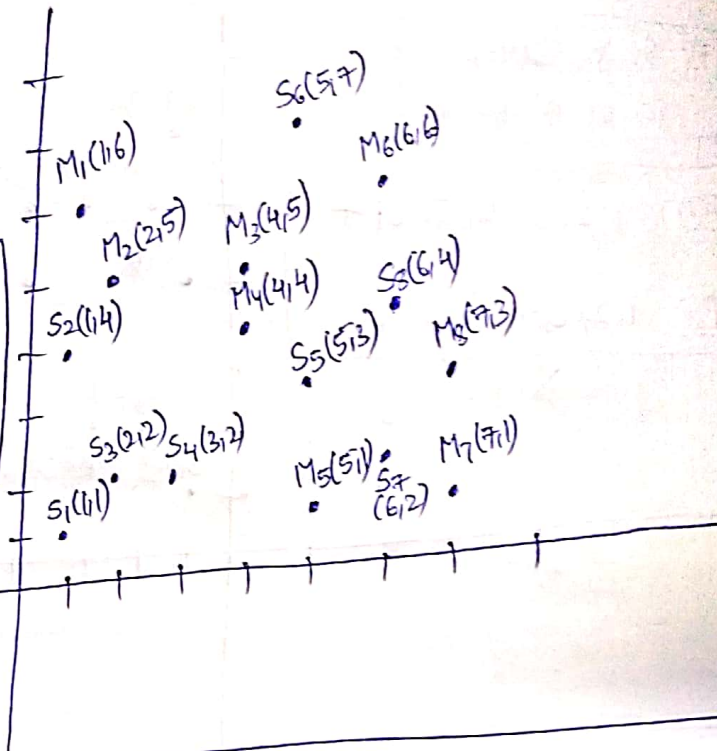 S6(5,7)
M6(6,6)
M1(1,6)
M2(2,5)
M3(4,5)
M4(4,4)
S8(6,4)
S2(1,4)
S5(5,3)
M8(7,3)
S3(2,2)
S4(3,2)
M5(5,1)
M7(7,1)
S7
(6,2)
S1(1,1)